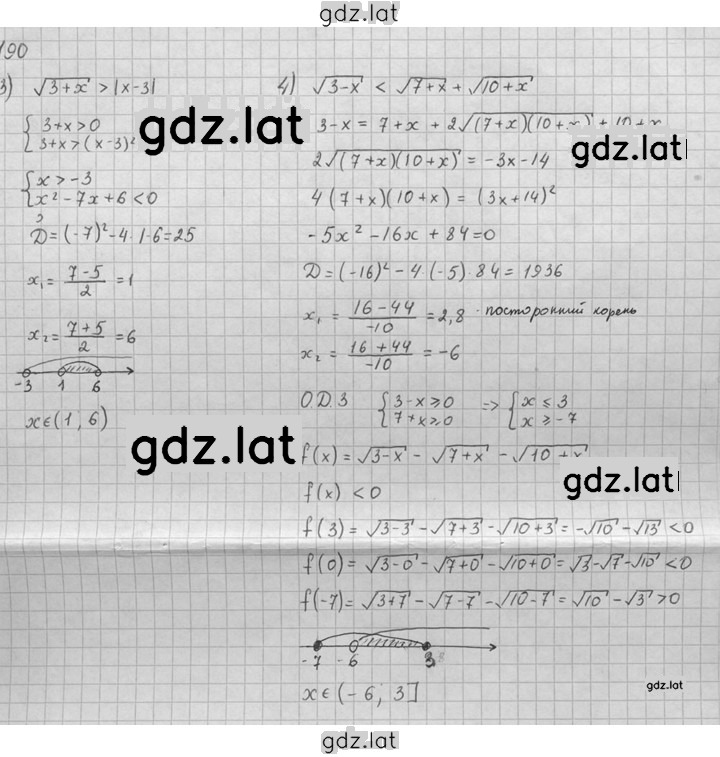 gdz.lat
190
3) √(3+x) > |x-3|
{ 3+x>0
3+x>(x-3)²
{ x>-3
x²-7x+6<0
D=(-7)²-4·1·6=25
x₁ = (7-5)/2 = 1
x₂ = (7+5)/2 = 6
-3 1 6
x∈(1, 6)
4) √(3-x) < √(7+x) + √(10+x)
3-x = 7+x + 2√((7+x)(10+x)) + 10+x
2√((7+x)(10+x)) = -3x-14
4(7+x)(10+x) = (3x+14)²
-5x²-16x+84=0
D=(-16)²-4·(-5)·84=1936
x₁ = (16-44)/-10 = 2,8 - посторонний корень
x₂ = (16+44)/-10 = -6
О.Д.З { 3-x≥0 => { x≤3
7+x≥0 x≥-7
f(x) = √(3-x) - √(7+x) - √(10+x)
f(x) <0
f(3) = √(3-3) - √(7+3) - √(10+3) = -√10 - √13 <0
f(0) = √(3-0) - √(7+0) - √(10+0) = √3-√7-√10 <0
f(-7) = √(3+7) - √(7-7) - √(10-7) = √10 - √3 >0
-7 -6 3
x∈(-6; 3]
gdz.lat
gdz.lat
gdz.lat
gdz.lat
gdz.lat
gdz.lat